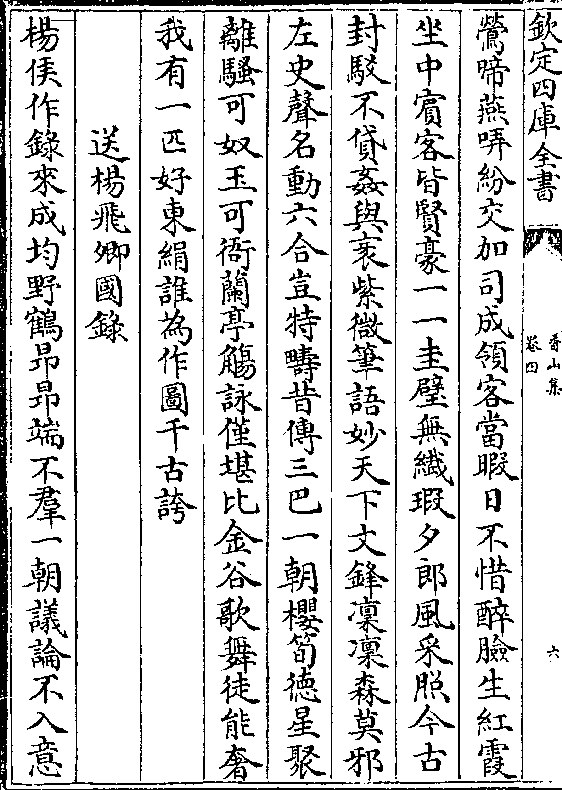 欽定四庫全書
香山集
卷四
六
鶯啼燕哢紛交加司成領客當暇日不惜醉臉生紅霞
坐中賓客皆賢豪一一圭璧無纖瑕夕郎風采照今古
封駁不貸姦與衺紫微筆語妙天下文鋒凜凜森莫邪
左史聲名動六合豈特疇昔傳三巴一朝櫻筍德星聚
離騷可奴玉可衙蘭亭觴詠僅堪比金谷歌舞徒能奢
我有一匹好東絹誰為作圖千古誇
送楊飛卿國錄
楊侯作錄來成均野鶴昂昂端不羣一朝議論不入意